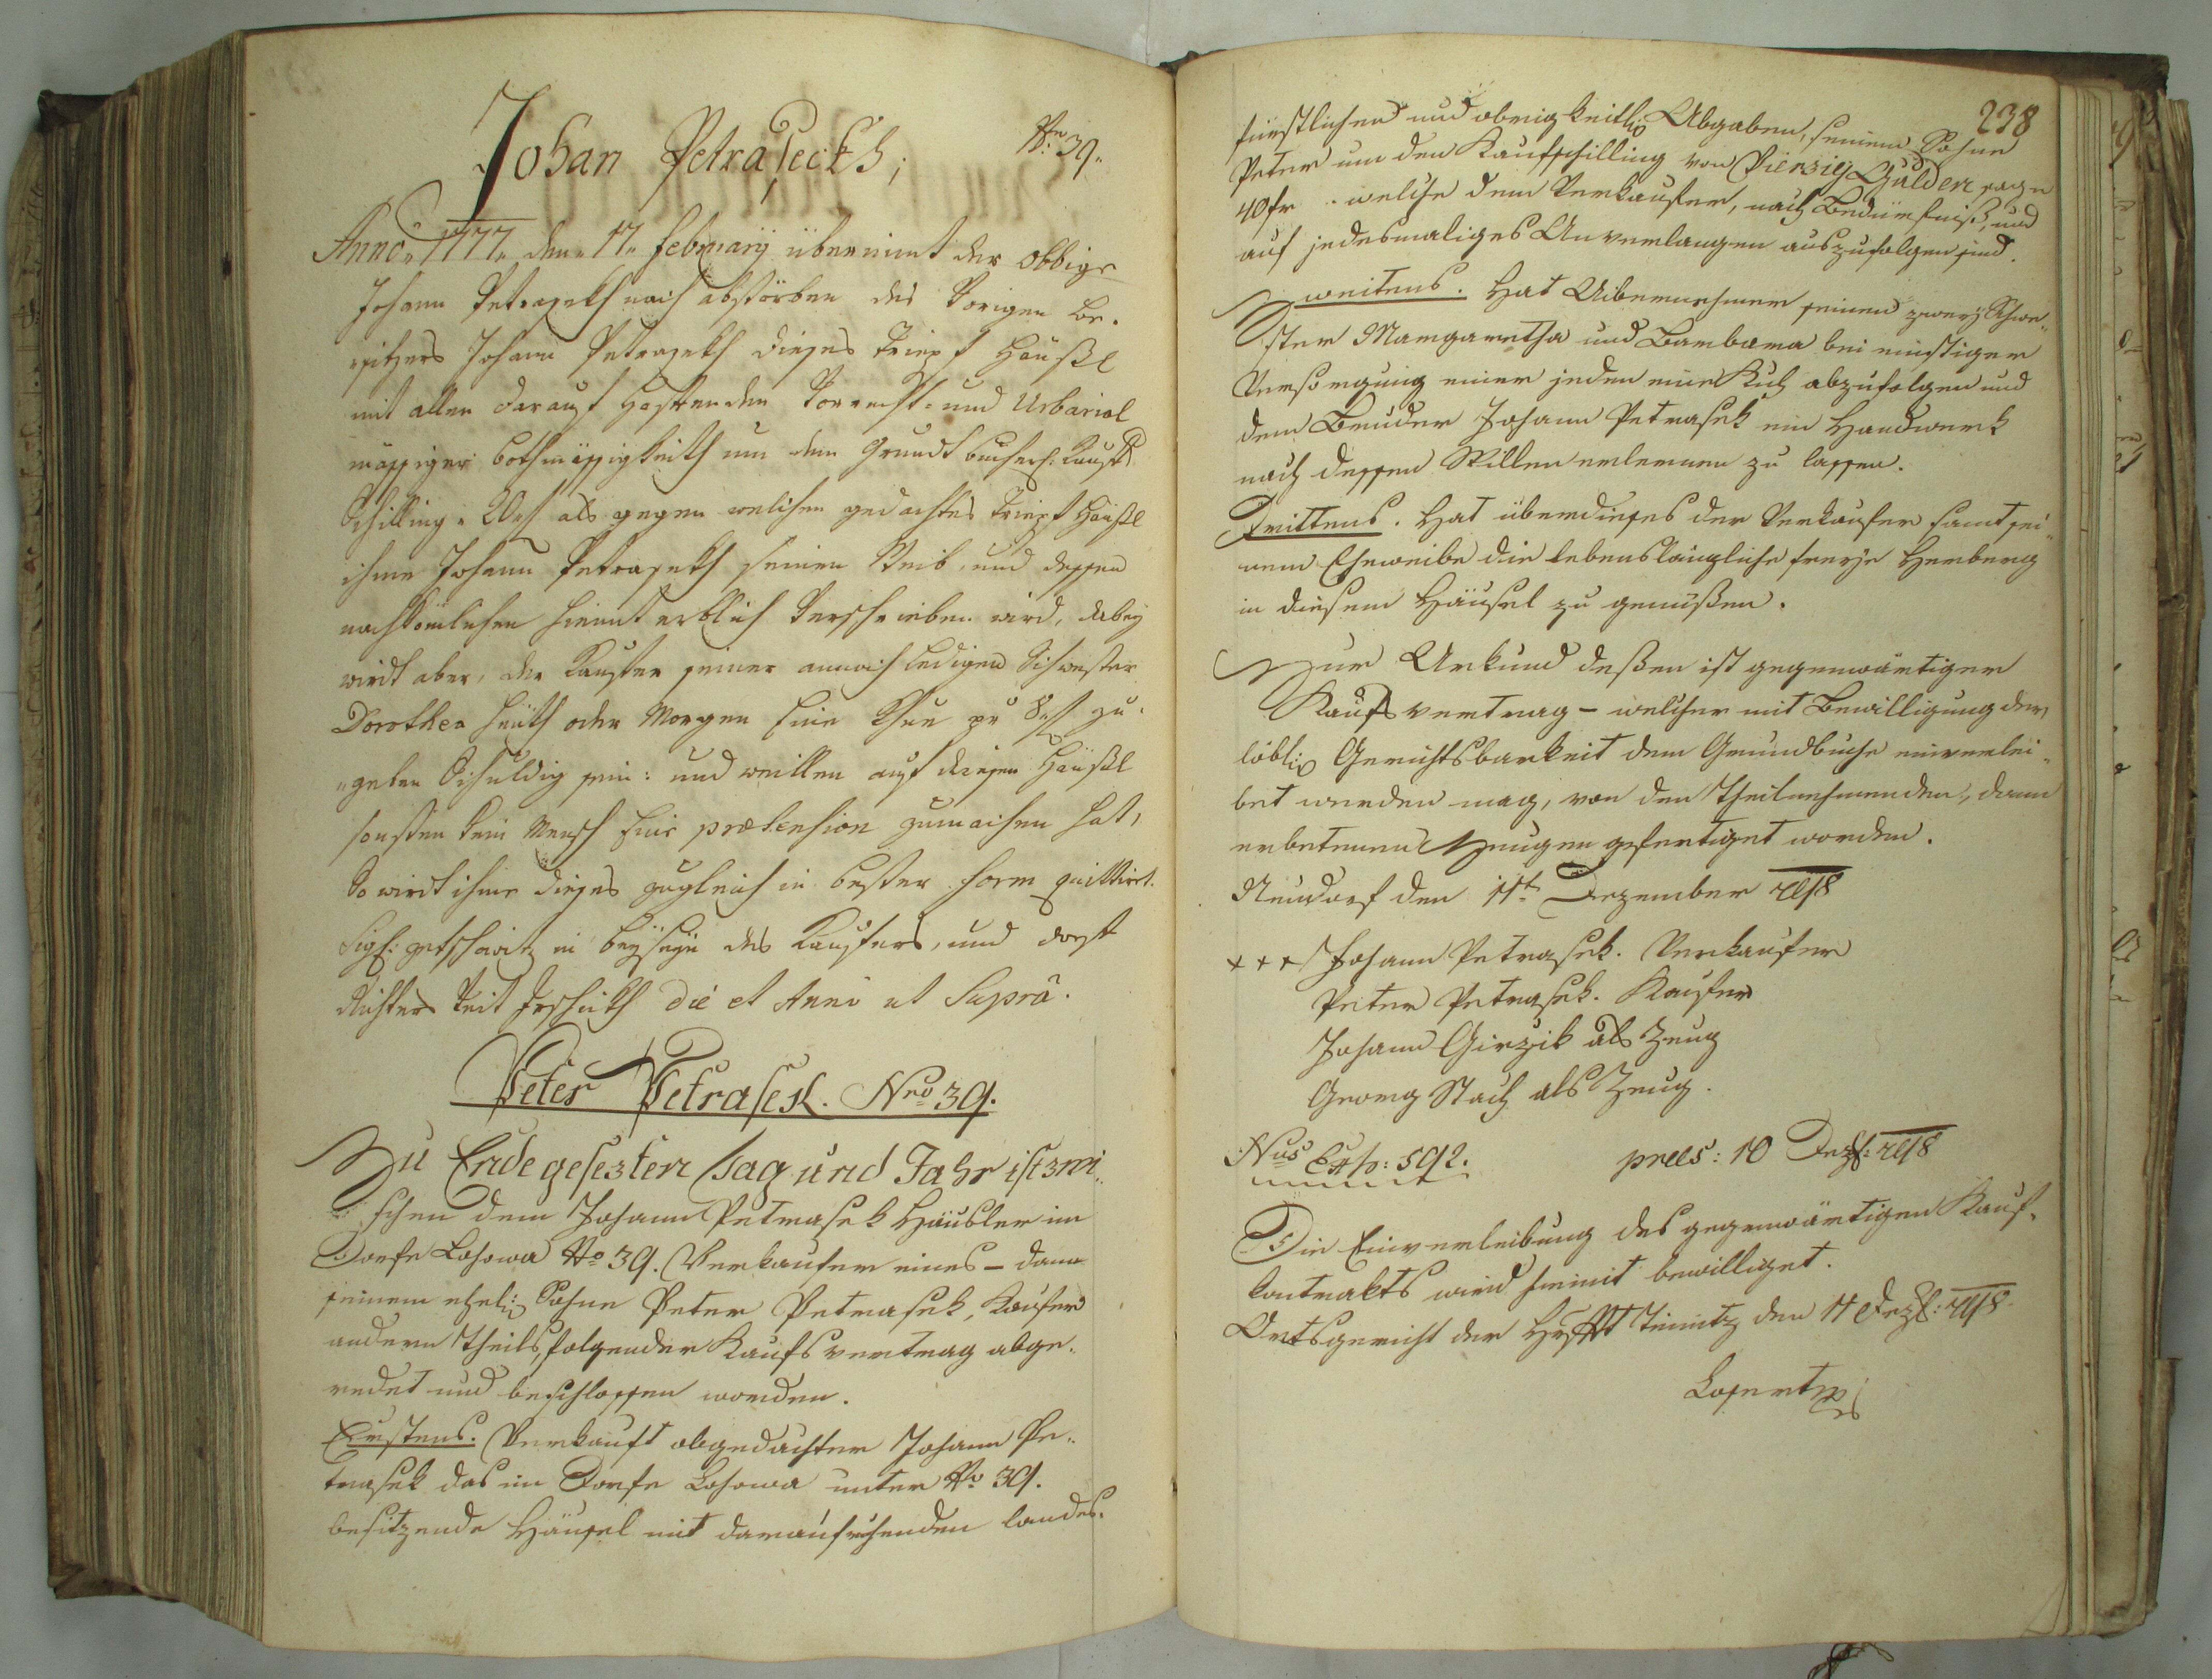 Johan Petraseckh; Nr: 39.
Anno 1777 den 17 February übernimt der obbige
Johann Petrasekh nach absterben des Vorigen be-
sitzers Johann Petrasekh dieses Häußl
mit allen darauf haftenden und Urbarial
mässiger bothmässigkeith um den Grundt bücherl: Kaufs
Schilling als gegen welchen gedachtes Häußl
ihme Johann Petrasekh seinen Weib, und dessen
nachkömlichen hiemit erblich Verschrieben wird, dabey
wirdt aber, der Kaufer seiner annoch ledigen Schwester
Dorothea heuth oder Morgen Eine Khue pr 8 f zu
geben Schuldig sein: und weillen auf diesen Häußl
sonsten kein Mensch Eine prætension zumachen hat,
So wirdt ihme dieses zugleich in bester Form quittirt.
Sigl: in beyseyn des Kaufers, und dorf
Richters Veit die et Anno ut Supra.
Peter Petrasek. Nro 39.
Zu Ende gesezten Tag und Jahr ist zwi-
schen dem Johann Petrasek Häusler im
Dorfe Lhowa No 39. Verkaufer eines – dann
seinem eheli: Sohne Peter Petrasek, Kaufer
andern Theils, folgender Kaufsvertrag abge-
redet und beschlossen worden.
Erstens. Verkauft obgedachter Johann Pe-
trasek das im Dorfe unter No 39.
besitzende Häusel mit daraufruhenden landes-
238
fürstlichen und obrigkeitli: Abgaben, seinem Sohne
Peter um den Kaufschilling von Vierzig Gulden sage
40 fr welche dem Verkaufer, nach Bedürfniß, und
auf jedesmaliges Anverlangen auszufolgen sind.
Zweitens. Hat Uibernehmer seinen zwey Schwe-
ster Margaretha und Barbara bei einstiger
Versorgung einer jeden eine Kuh abzufolgen und
dem Bruder Johann Petrasek ein Handwerk
nach dessen Willen erlernen zu lassen.
Drittens. Hat überdieses der Verkaufer samt sei-
nem Eheweibe die lebenslängliche freye Herberg
in diesem Häusel zu genüßen.
Zur Urkund deßen ist gegenwärtiger
Kaufsvertrag – welcher mit Bewilligung der
löbli: Gerichtsbarkeit dem Grundbuche einverlei-
bet werden mag, von den Theilnehmenden, dann
erbetenen Zeugen gefertiget worden.
Neudorf den 11t Dezember
+++ Johann Petrasek. Verkaufer
Peter Petrasek. Kaufer
Johann Girzik als Zeug
Georg Stach als Zeug.
Nus Exh: 592. præs: 10 Dezb:
Die Einverleibung des gegenwärtigen Kauf-
kontrakts wird hiemit bewilliget.
Ortsgericht der Hrschft den 11 Dezb: